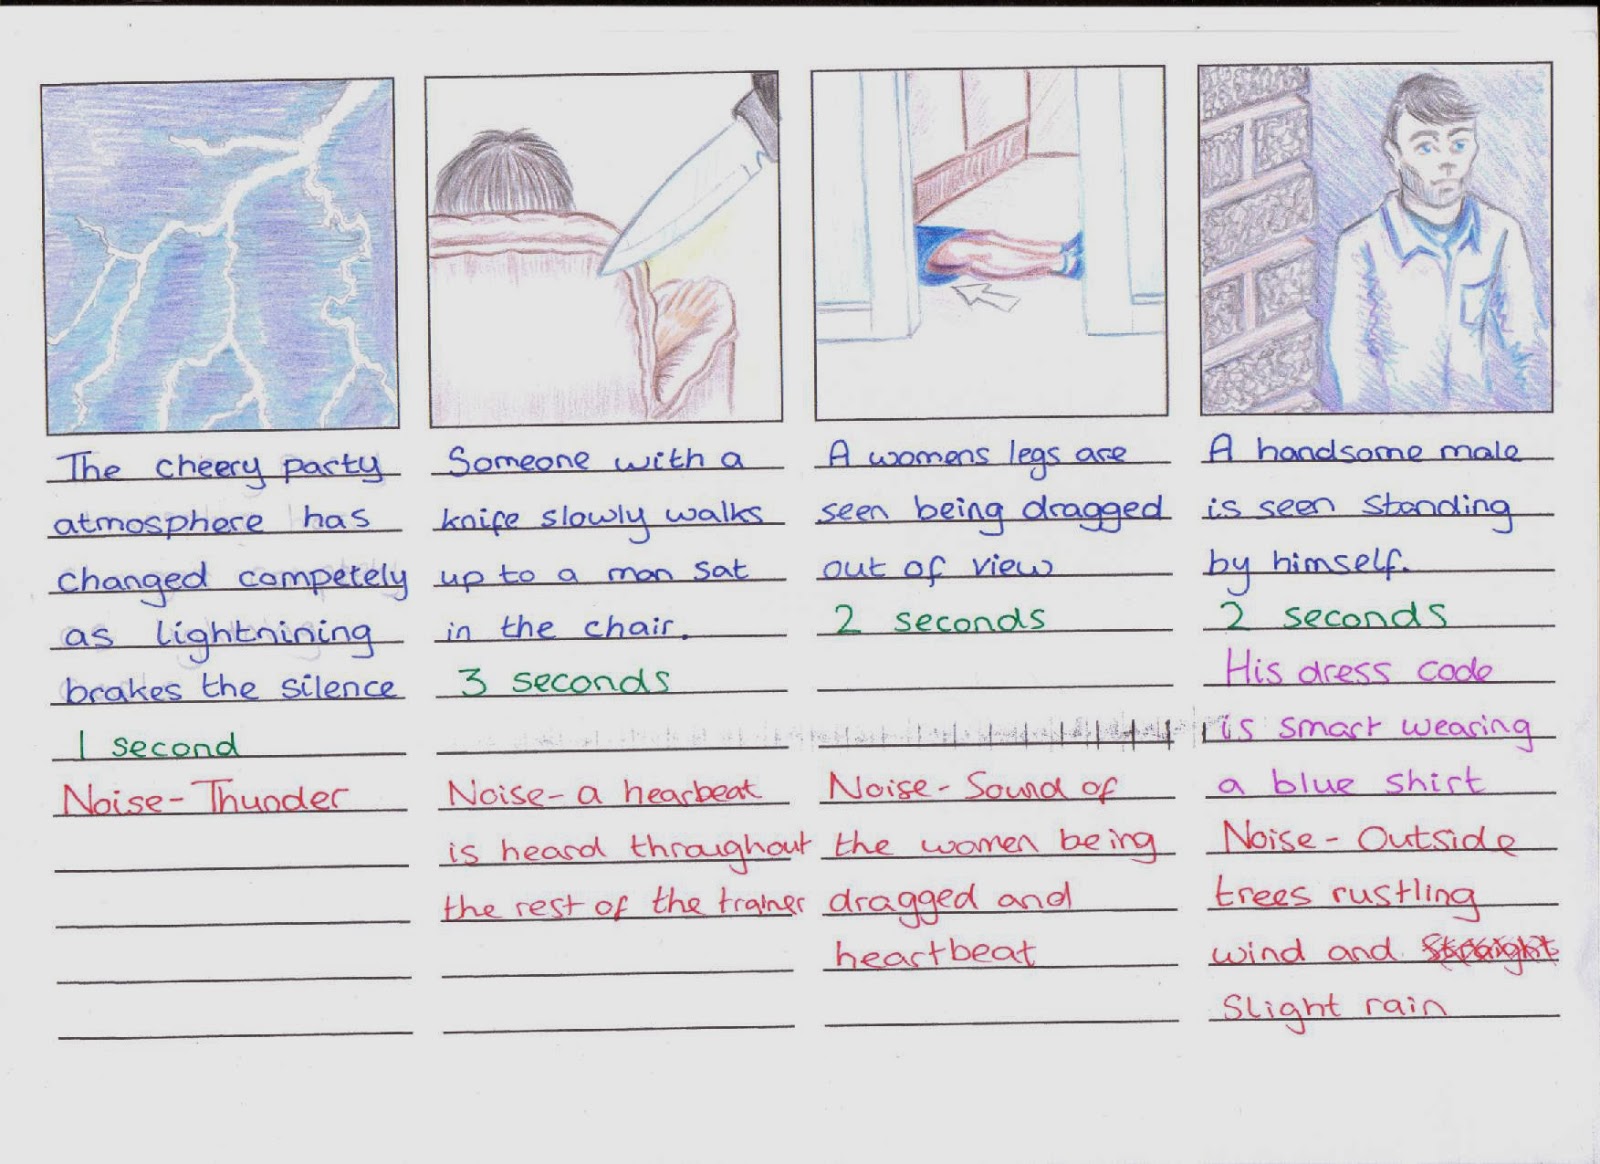 The cheery party
atmosphere has
changed competely
as lightnining
brakes the silence
1 second
Noise - Thunder
Someone with a
knife slowly walks
up to a man sat
in the chair.
3 seconds
Noise - a hearbeat
is heard throughout
the rest of the trainer
A womens legs are
seen being dragged
out of view
2 seconds
Noise - Sound of
the women being
dragged and
heartbeat
A handsome male
is seen standing
by himself.
2 seconds
His dress code
is smart wearing
a blue shirt
Noise - Outside
trees rustling
wind and
Slight rain